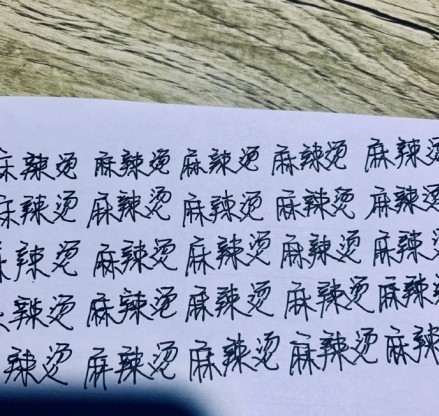 麻辣烫 麻辣烫 麻辣烫 麻辣烫 麻辣烫
麻辣烫 麻辣烫 麻辣烫 麻辣烫 麻辣烫
麻辣烫 麻辣烫 麻辣烫 麻辣烫 麻辣烫
辣烫 麻辣烫 麻辣烫 麻辣烫 麻辣
辣烫 麻辣烫 麻辣烫 麻辣烫 麻辣